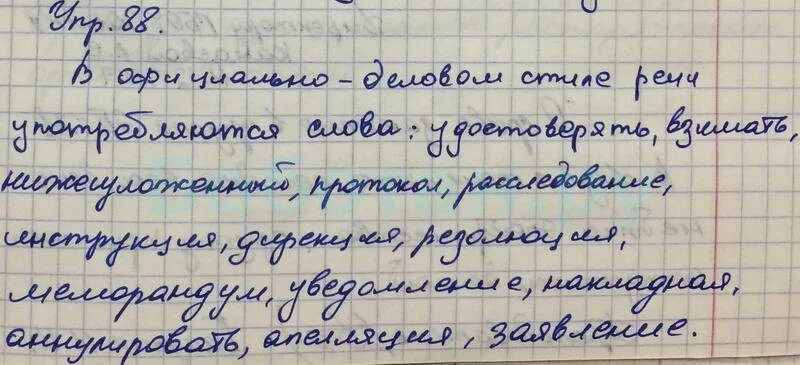 Упр. 88.
В официально-деловом стиле речи
употребляются слова: удостоверять, взимать,
нижеизложенный, протокол, расследование,
инструкция, дирекция, резолюция,
меморандум, уведомление, накладная,
аннулировать, апелляция, заявление.